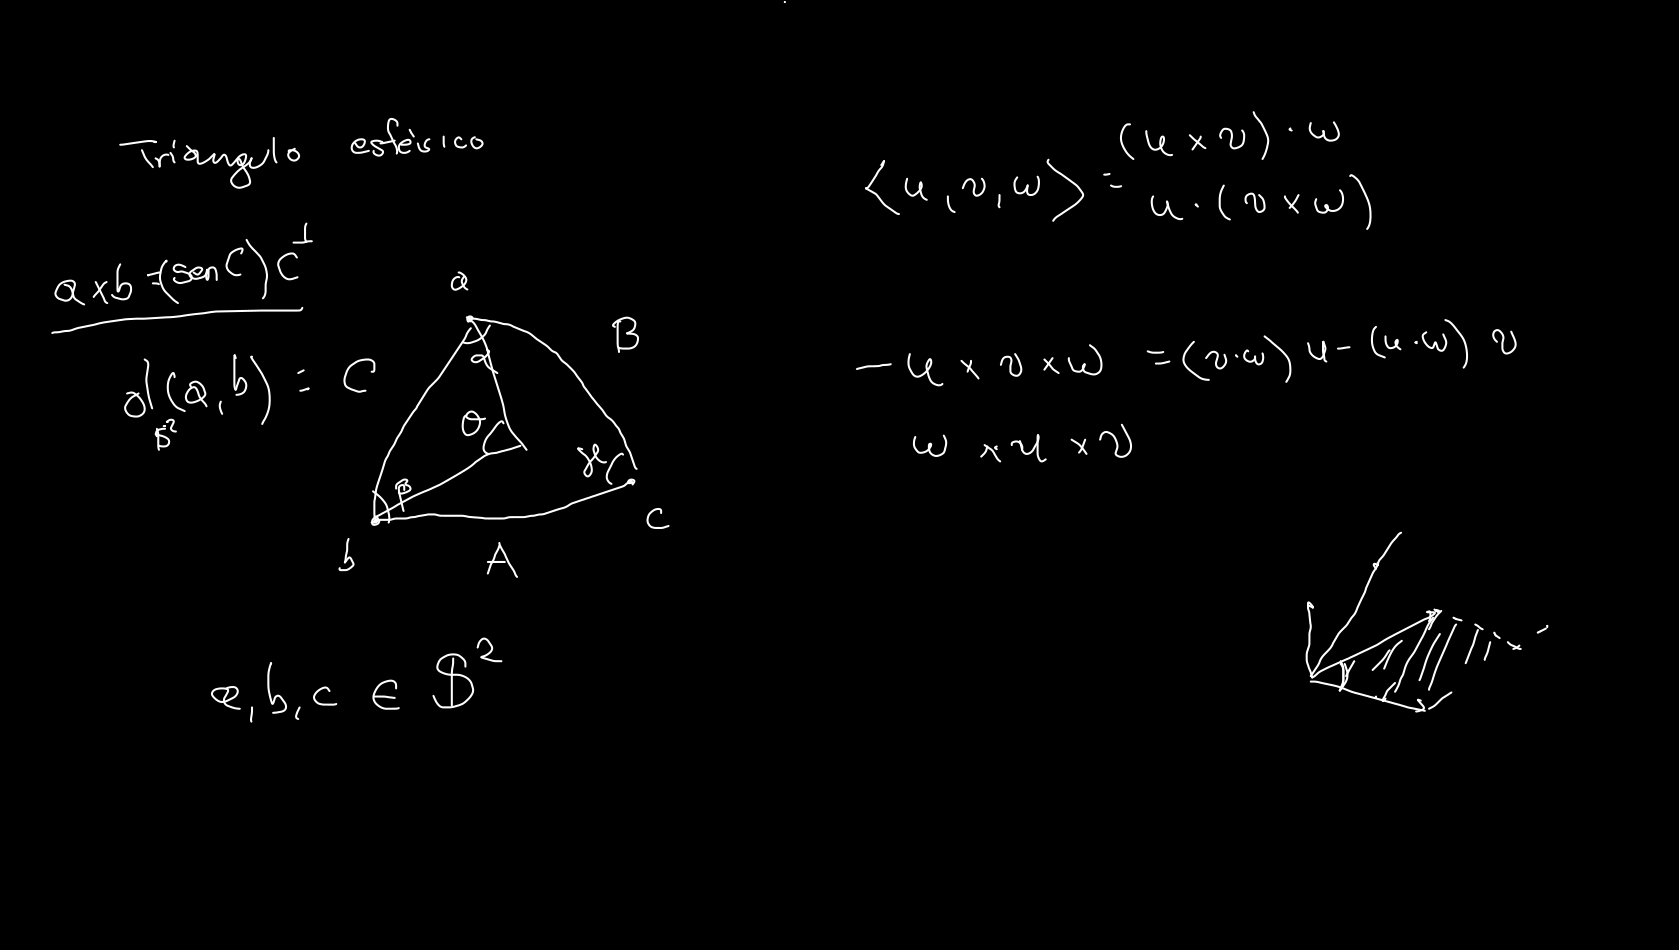 Triangulo esférico
a×b=(sen C) C^⊥
d_{S²}(a,b) = C
a
B
α
θ
γ
β
c
b
A
a,b,c ∈ S²
(u × v) · w
<u,v,w> =
u · (v × w)
− u × v × w = (v·w) u − (u·w) v
w × u × v